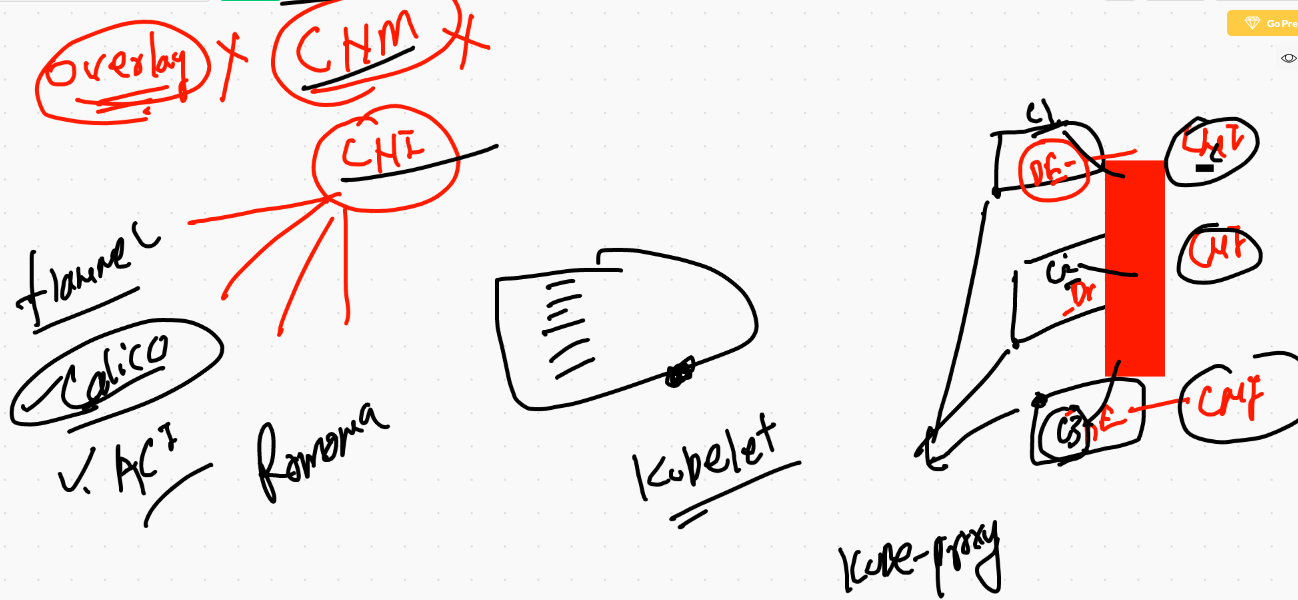 Go Pre
overlay X CNM X
CNI
flannel
Calico
ACI
Romana
Kubelet
Kube-proxy
C1
DE-
CNI
CNI
Dr
C3
CNI